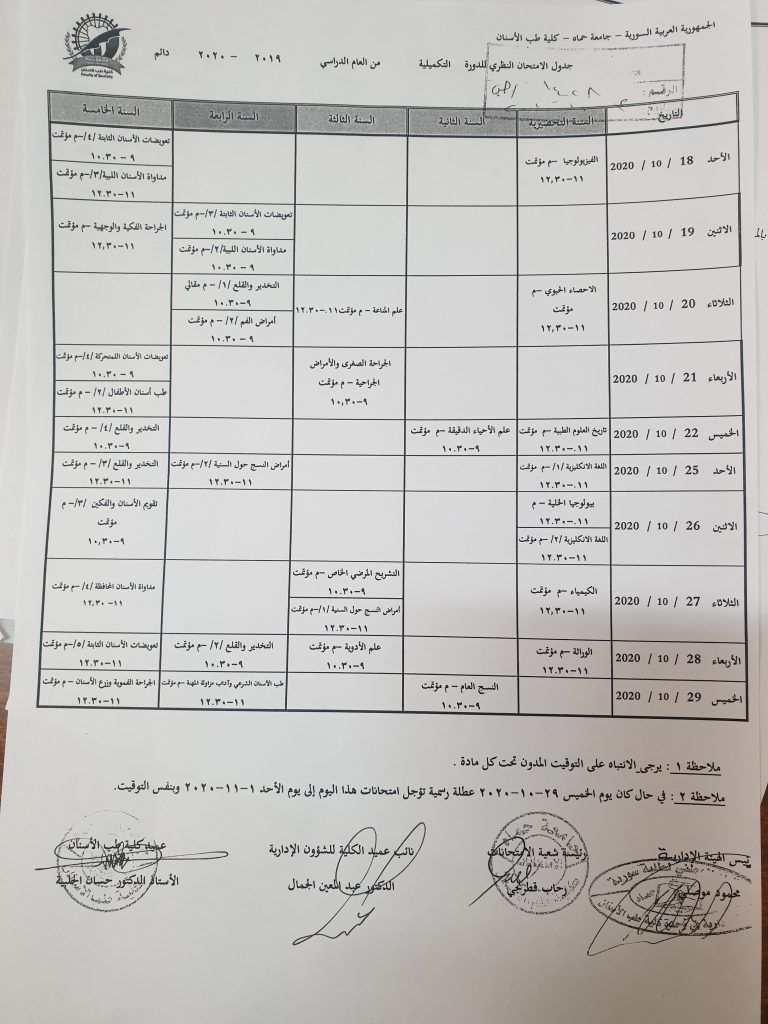 الجمهورية العربية السورية – جامعة حماه – كلية طب الأسنان
جدول الامتحان النظري للدورة التكميلية من العام الدراسي ٢٠١٩ - ٢٠٢٠ دائم
Faculty of Dentistry
الرقم:
التاريخ السنة التحضيرية السنة الثانية السنة الثالثة السنة الرابعة السنة الخامسة
الأحد 18 / 10 / 2020
الفيزيولوجيا –م مؤتمت
١١-١٢,٣٠
تعويضات الأسنان الثابتة /٤/–م مؤتمت
٩ - ١٠.٣٠
مداواة الأسنان اللبية/٣/–م مؤتمت
١١-١٢.٣٠
الاثنين 19 / 10 / 2020
تعويضات الأسنان الثابتة /٣/–م مؤتمت
٩ - ١٠.٣٠
مداواة الأسنان اللبية/٢/–م مؤتمت
٩ - ١٠.٣٠
الجراحة الفكية والوجهية –م مؤتمت
١١-١٢,٣٠
الثلاثاء 20 / 10 / 2020
الاحصاء الحيوي –م
مؤتمت
١١-١٢,٣٠
علم المناعة – م مؤتمت ١١.-١٢.٣٠
التخدير والقلع /١/ – م مقالي
٩-١٠.٣٠
أمراض الفم /٢/ – م مؤتمت
٩-١٠.٣٠
الأربعاء 21 / 10 / 2020
الجراحة الصغرى والأمراض
الجراحية – م مؤتمت
٩-١٠,٣٠
تعويضات الأسنان اللمتحركة /٤/–م مؤتمت
٩ - ١٠.٣٠
طب أسنان الأطفال /٢/ – م مؤتمت
١١-١٢.٣٠
الخميس 22 / 10 / 2020
تاريخ العلوم الطبية –م مؤتمت
١١.-١٢.٣٠
علم الأحياء الدقيقة –م مؤتمت
٩-١٠.٣٠
التخدير والقلع /٤/ – م مؤتمت
٩-١٠.٣٠
الأحد 25 / 10 / 2020
اللغة الانكليزية /١/ –م مؤتمت
١١.-١٢.٣٠
أمراض النسج حول السنية /٢/–م مؤتمت
١١-١٢.٣٠
التخدير والقلع /٣/ –م مؤتمت
١١-١٢.٣٠
الاثنين 26 / 10 / 2020
بيولوجيا الخلية – م
١١.-١٢.٣٠
اللغة الانكليزية /٢/ –م مؤتمت
١١-١٢.٣٠
تقويم الأسنان والفكين /٣/–م
مؤتمت
٩-١٠,٣٠
الثلاثاء 27 / 10 / 2020
الكيمياء –م مؤتمت
١١-١٢,٣٠
التشريح المرضي الخاص –م مؤتمت
٩-١٠.٣٠
أمراض النسج حول السنية /١/–م مؤتمت
١١-١٢.٣٠
مداواة الأسنان المحافظة /٤/ –م مؤتمت
١١-١٢,٣٠
الأربعاء 28 / 10 / 2020
الوراثة –م مؤتمت
١١-١٢.٣٠
علم الأدوية –م مؤتمت
٩-١٠.٣٠
التخدير والقلع /٢/ –م مؤتمت
٩-١٠.٣٠
تعويضات الأسنان الثابتة /٥/–م مؤتمت
١١-١٢.٣٠
الخميس 29 / 10 / 2020
النسج العام – م مؤتمت
٩-١٠.٣٠
طب الأسنان الشرعي وآداب مزاولة المهنة –م مؤتمت
١١-١٢.٣٠
الجراحة الفموية وزرع الأسنان – م مؤتمت
١١-١٢.٣٠
ملاحظة ١ : يرجى الانتباه على التوقيت المدون تحت كل مادة .
ملاحظة ٢ : في حال كان يوم الخميس ٢٩-١٠-٢٠٢٠ عطلة رسمية تؤجل امتحانات هذا اليوم إلى يوم الأحد ١-١١-٢٠٢٠ وبنفس التوقيت.
رئيس الهيئة الإدارية رئيسة شعبة الامتحانات نائب عميد الكلية للشؤون الإدارية عميد كلية طب الأسنان
محمود موصلي رحاب قطرنجي الدكتور عبد المعين الجمال الأستاذ الدكتور حسان الحلبية